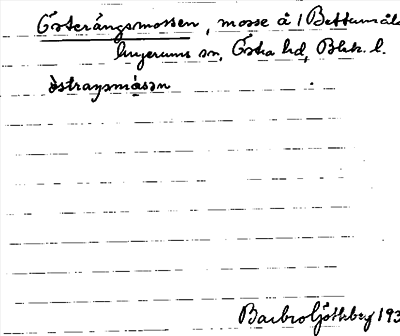 Österängsmossen, mosse å 1 Bettemåla
hugerums sn, Östra hd, Blek. l.
östraŋsmåsən
Barbro Göthberg 193